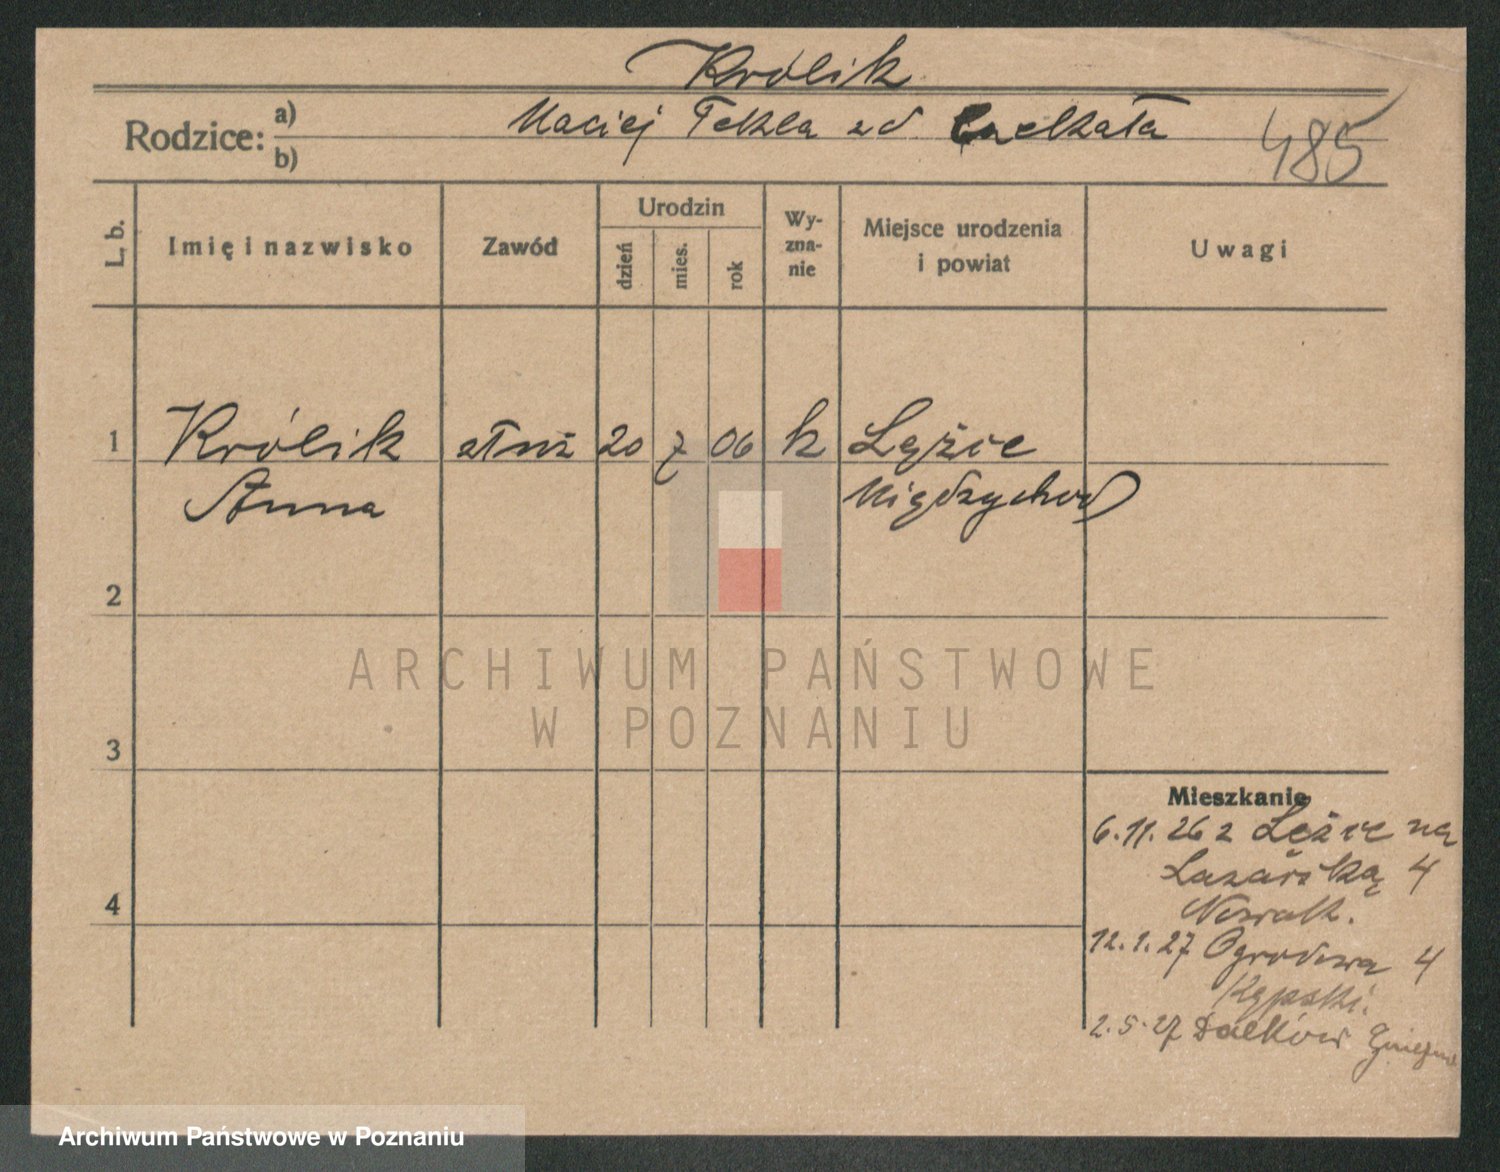 Królik
Rodzice: a) Maciej Tekla zd
b)
485
L. b.
Imię i nazwisko
Zawód
Urodzin
dzień
mies.
rok
Wy-
zna-
nie
Miejsce urodzenia
i powiat
Uwagi
1 Królik służ 20 7 06 k Lężce
Anna Międzychod
2
3
4
Mieszkanie
6.11.26 z Leżce na
Łazarską 4
Nowak.
12.1.27 Ogrodowa 4
2.5.27 Dalków Gniezno
ARCHIWUM PAŃSTWOWE
W POZNANIU
Archiwum Państwowe w Poznaniu